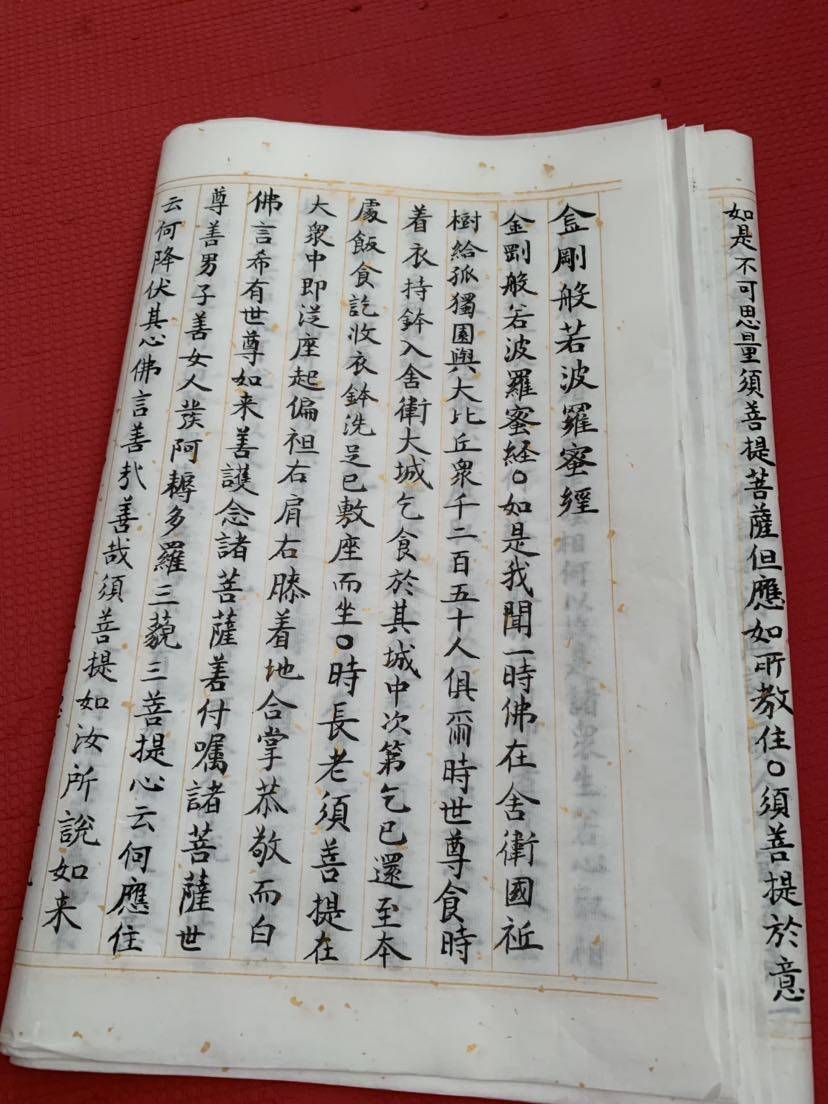 如是不可思量須菩提菩薩但應如所教住○須菩提於意
金剛般若波羅蜜經
金剛般若波羅蜜経○如是我聞一時佛在舍衛國祇
樹給孤獨園與大比丘衆千二百五十人俱爾時世尊食時
着衣持鉢入舍衛大城乞食於其城中次第乞已還至本
處飯食訖收衣鉢洗足已敷座而坐○時長老須菩提在
大衆中即従座起偏袒右肩右膝着地合掌恭敬而白
佛言希有世尊如来善護念諸菩薩善付囑諸菩薩世
尊善男子善女人發阿耨多羅三藐三菩提心云何應住
云何降伏其心佛言善哉善哉須菩提如汝所說如来